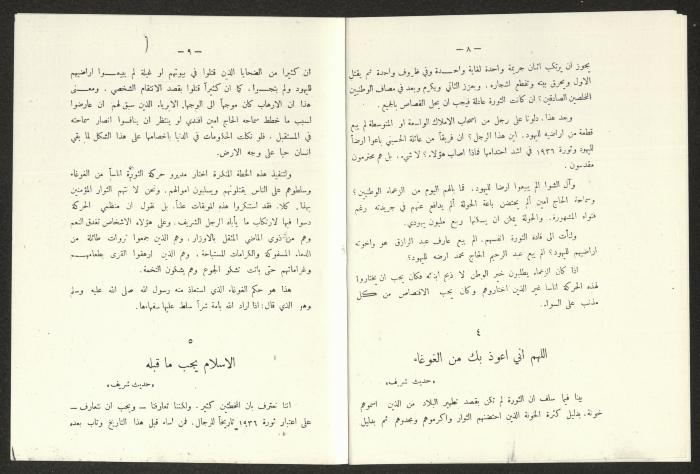 — ٨ —
يجوز ان يرتكب اثنان جريمة واحدة لغاية واحدة وفي ظروف واحدة ثم يقتل
الاول ويحرق بيته وتقطع اشجاره، ويعزز الثاني ويكرم ويعد في مصاف الوطنيين
المخلصين الصادقين؟ ان كانت الثورة عادلة فيجب ان يحل القصاص بالجميع.
وبعد هذا، دلونا على رجل من اصحاب الاملاك الواسعة او المتوسطة لم يبع
قطعة من اراضيه لليهود. اين هذا الرجل؟ ان فريقاً من عائلة الحسيني باعوا ارضاً
لليهود وثورة ١٩٣٦ في اشد احتدامها فماذا اصاب هؤلاء؟ لا شيء، بل هم محترمون
مقدسون.
وآل الشوا الم يبيعوا ارضا لليهود، فما بالهم اليوم من الزعماء الوطنيين؟
وسماحة الحاج امين ألم يحتضن باعة الحولة ألم يدافع عنهم في جريدته رغم
فتواه المشهورة. والحولة يمكن ان يسكنها ربع مليون يهودي.
ولنأت الى قادة الثورة انفسهم. الم يبع عارف عبد الرازق هو واخوته
اراضيهم لليهود؟ الم يبع عبد الرحيم الحاج محمد ارضه لليهود؟
اذا كان الزعماء يطلبون خير الوطن لا ذبح ابنائه فكان يجب ان يختاروا
لهذه الحركة اناسا غير الذين اختاروهم وكان يجب الاقتصاص من كل
مذنب على السواء.
٤
اللهم اني اعوذ بك من الغوغاء
«حديث شريف»
بينا فيما سلف ان الثورة لم تكن بقصد تطهير البلاد من الذين اسموهم
خونة، بدليل كثرة الخونة الذين احتضنهم الثوار واكرموهم ومجدوهم ثم بدليل
— ٩ —
ان كثيرا من الضحايا الذين قتلوا في بيوتهم او غيلة لم يبيعوا اراضيهم
لليهود ولم يتجسسوا، كما ان كثيراً قتلوا بقصد الانتقام الشخصي. ومعنى
هذا ان الارهاب كان موجهاً الى الوجهاء الابرياء الذين سبق لهم ان عارضوا
لسبب ما خطط سماحة الحاج امين افندي او ينتظر ان ينافسوا انصار سماحته
في المستقبل. فلو نكات الحكومات في الدنيا باخصامها على هذا الشكل لما بقي
انسان حيا على وجه الارض.
ولتنفيذ هذه الخطة المنكرة اختار مديرو حركة الثورة اناساً من الغوغاء
وسلطوهم على الناس يقتلونهم ويسلبون اموالهم. ونحن لا نتهم الثوار المؤمنين
بهذا، كلا. فقد استنكروا هذه الموبقات علناً. بل نقول ان منظمي الحركة
دسوا فيها لارتكاب ما يأباه الرجل الشريف. وعلى هؤلاء الاشخاص تغدق النعم
وهم من ذوي الماضي المثقل بالاوزار. وهم الذين جمعوا ثروات طائلة من
الدماء المسفوكة والكرامات المستباحة، وهم الذين ارهقوا القرى بطعامهم
وغراماتهم حتى باتت تشكو الجوع وهم يشكون التخمة.
هذا هو حكم الغوغاء الذي استعاذ منه رسول الله صلى الله عليه وسلم
وهو الذي قال: اذا اراد الله بأمة شراً سلط عليها سفهاءها.
٥
الاسلام يجب ما قبله
«حديث شريف»
اننا نعترف بان المخطئين كثير. ولكننا تعارفنا — ويجب ان نتعارف —
على اعتبار ثورة ١٩٣٦ تاريخاً للرجال. فمن اساء قبل هذا التاريخ وتاب بعده